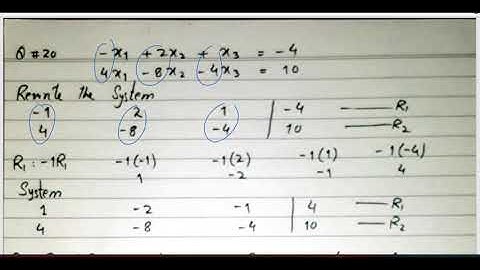 Q # 20 -x₁ + 2x₂ + x₃ = -4
4x₁ -8x₂ -4x₃ = 10
Rewrite the System
-1 2 1 | -4 —— R₁
4 -8 -4 | 10 —— R₂
R₁: -1R₁ -1(-1) -1(2) -1(1) -1(-4)
1 -2 -1 4
System
1 -2 -1 | 4 —— R₁
4 -8 -4 | 10 —— R₂